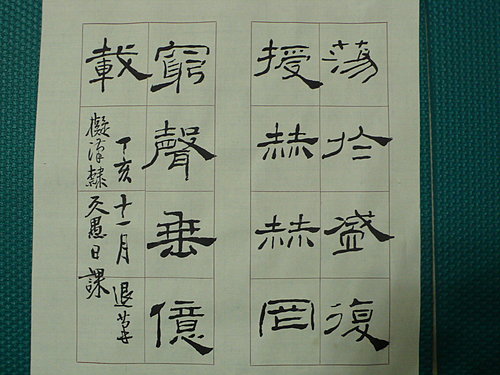 蕩於盛復
授赫赫罔
窮聲垂億
載
丁亥十一月退筆
擬漢隸久愚日課